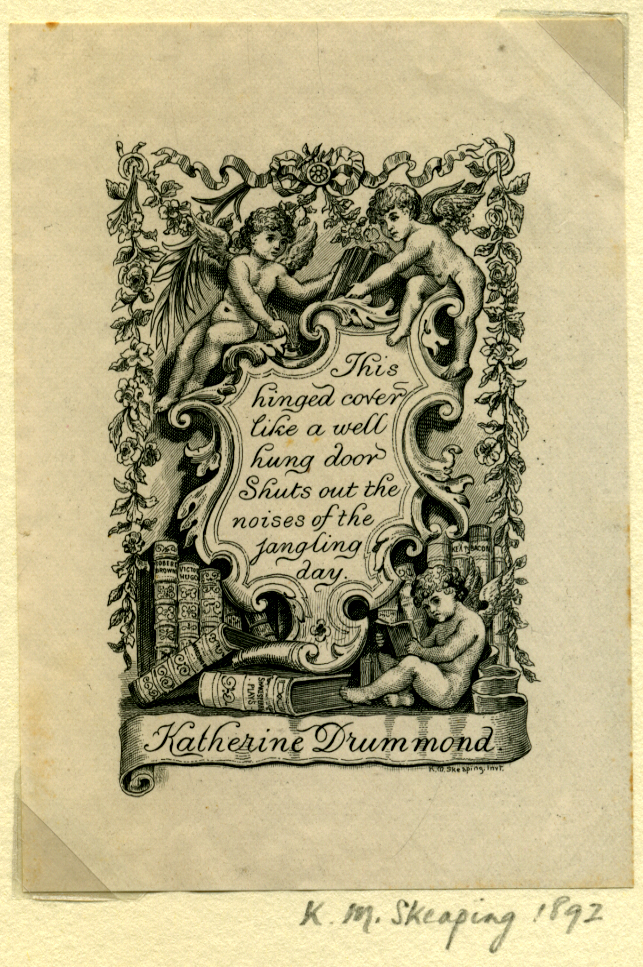 This
hinged cover
like a well
hung door
Shuts out the
noises of the
jangling
day.
ROBERT
BROWN
VICTOR
HUGO
BACON
SHAKESPEARE
PLAYS
Katherine Drummond.
K.M. Skeaping, Invt.
K. M. Skeaping 1892